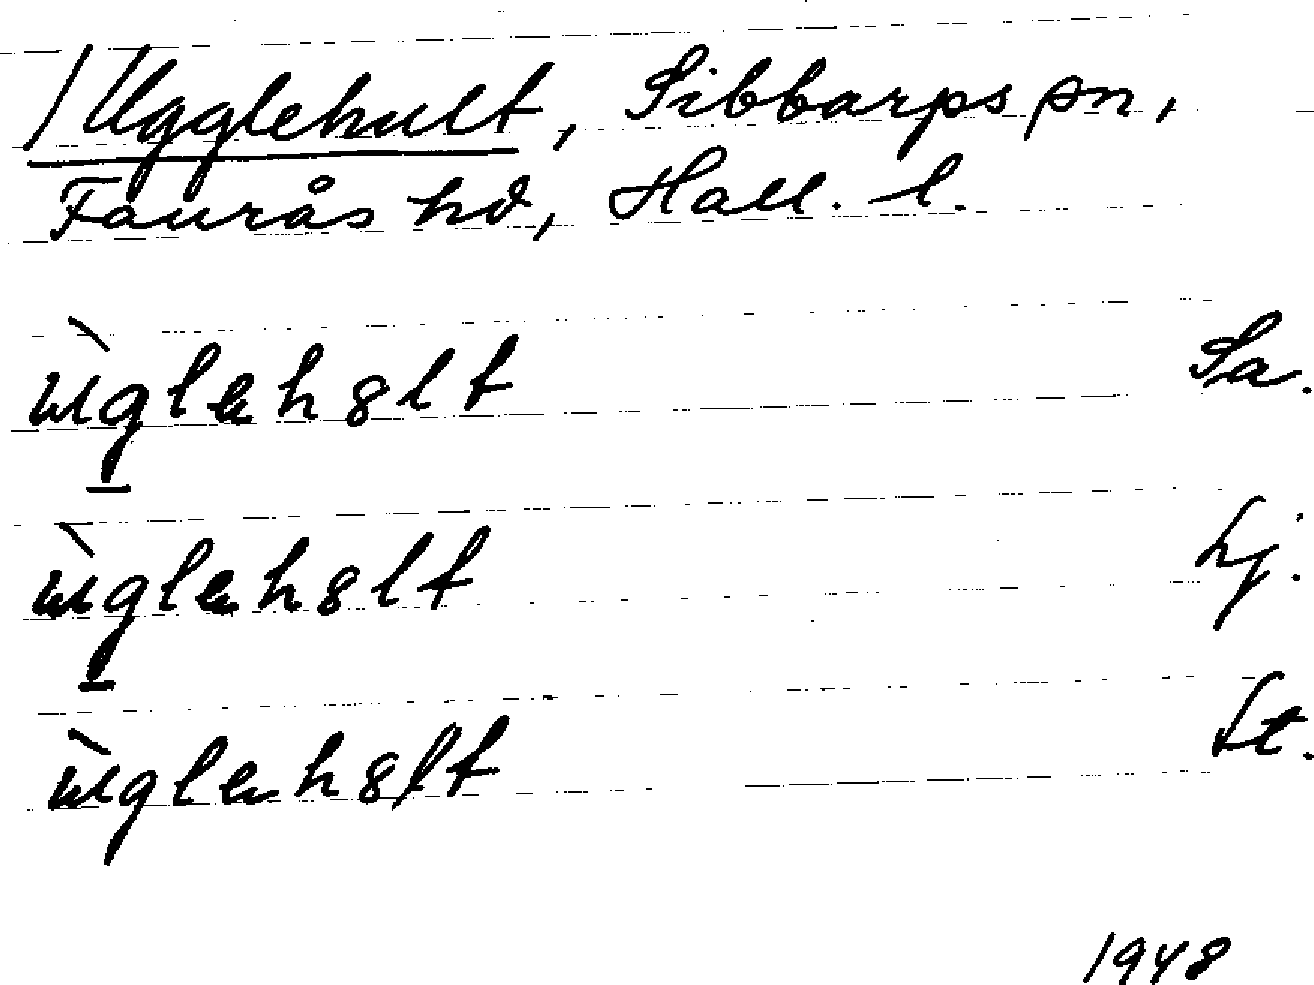 Ugglehult, Sibbarps sn,
Faurås hd, Hall. l.
ùglehșlt Sa.
ùglehșlt hj.
ùglehșlt St.
1948